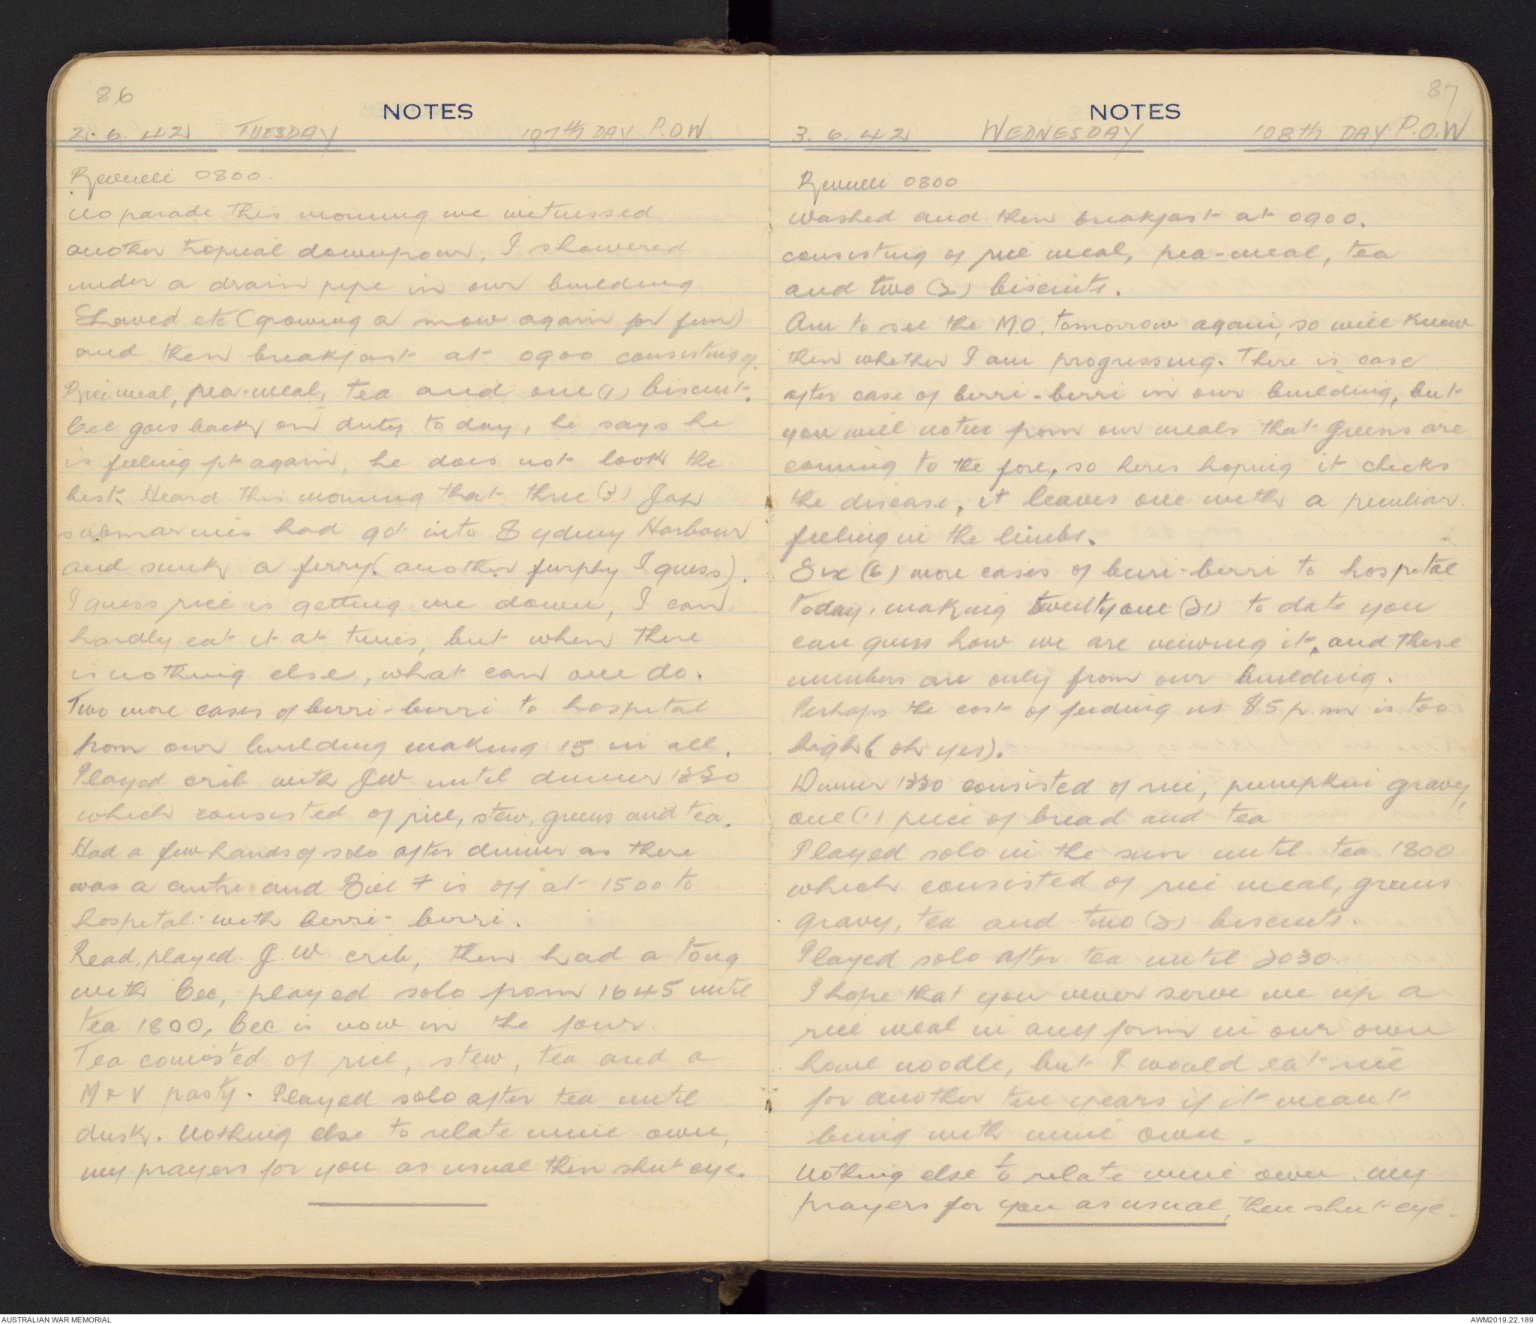 86
NOTES
2.6.42 TUESDAY 107th DAY P.O.W
Revielli 0800.
No parade this morning we witnessed
another tropical downpour, I showered
under a drain pipe in our building.
Shaved etc (growing a mow again for fun)
and then breakfast at 0900 consisting of
Rice meal, pea-meal, tea and one (1) biscuit.
Cec goes back on duty to day, he says he
is feeling fit again, he does not look the
best. Heard this morning that three (3) Jap
submarines had got into Sydney Harbour
and sunk a ferry (another furphy I guess).
I guess rice is getting me down, I can
hardly eat it at times, but when there
is nothing else, what can one do.
Two more cases of berri-berri to hospital
from our building making 15 in all.
Played crib with J.W. until dinner 1330
which consisted of rice, stew, greens and tea.
Had a few hands of solo after dinner as there
was a and Bill F is off at 1500 to
hospital with berri-berri.
Read, played J.W crib, then had a tong
with Cec, played solo from 1645 until
tea 1800, Cec is now in the four.
Tea consisted of rice, stew, tea and a
M & V pasty. Played solo after tea until
dusk. Nothing else to relate mine own,
my prayers for you as usual then shut eye.
87
NOTES
3.6.42 WEDNESDAY 108th DAY P.O.W
Revielli 0800
Washed and then breakfast at 0900.
consisting of rice meal, pea-meal, tea
and two (2) biscuits.
Am to see the M.O. tomorrow again, so will know
then whether I am progressing. There is case
after case of berri-berri in our building, but
you will notice from our meals that greens are
coming to the fore, so heres hoping it checks
the disease, it leaves one with a peculiar
feeling in the limbs.
Six (6) more cases of berri-berri to hospital
today, making twenty one (21) to date you
can guess how we are viewing it, and these
numbers are only from our building.
Perhaps the cost of feeding us $5 p.m is too
high (oh yes).
Dinner 1330 consisted of rice, pumpkin gravy,
one (1) piece of bread and tea
Played solo in the sun until tea 1800
which consisted of rice meal, greens
gravy, tea and two (2) biscuits.
Played solo after tea until 2030.
I hope that you never serve me up a
rice meal in any form in our own
home noodle, but I would eat rice
for another ten years if it meant
being with mine own.
Nothing else to relate mine own. my
prayers for you as usual, then shut-eye.
AUSTRALIAN WAR MEMORIAL
AWM2019.22.189